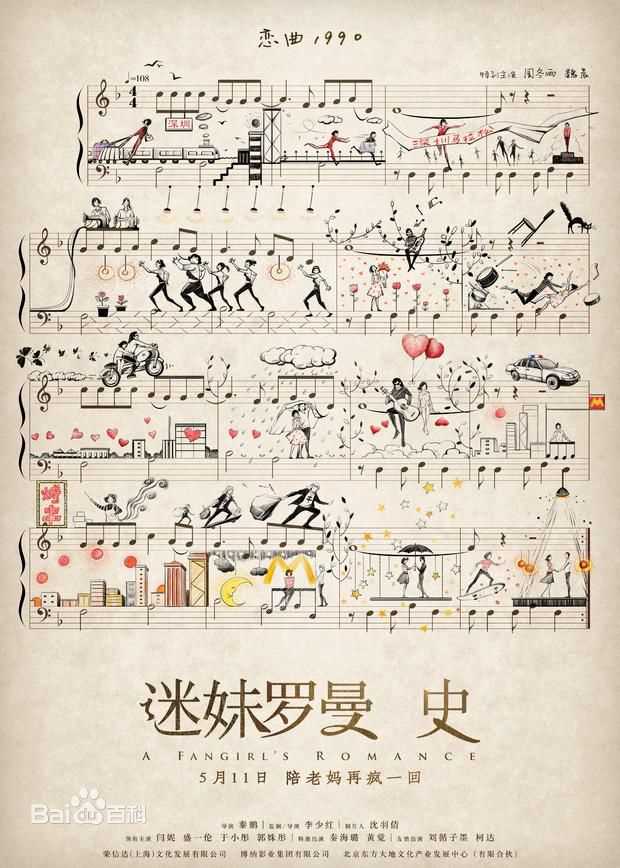 恋曲1990
特别主演 周冬雨 魏晨
=108
4
4
深圳
M
迷妹罗曼 史
A FANGIRL'S ROMANCE
5月11日 陪老妈再疯一回
Bai du 百科
导演 秦鹏 | 监制/导演 李少红 | 制片人 沈羽倩
领衔主演 闫妮 盛一伦 于小彤 郭姝彤 | 特邀出演 秦海璐 黄觉 | 友情出演 刘循子墨 柯达
荣信达(上海)文化发展有限公司 博纳影业集团有限公司 北京东方大地文化产业发展中心(有限合伙)